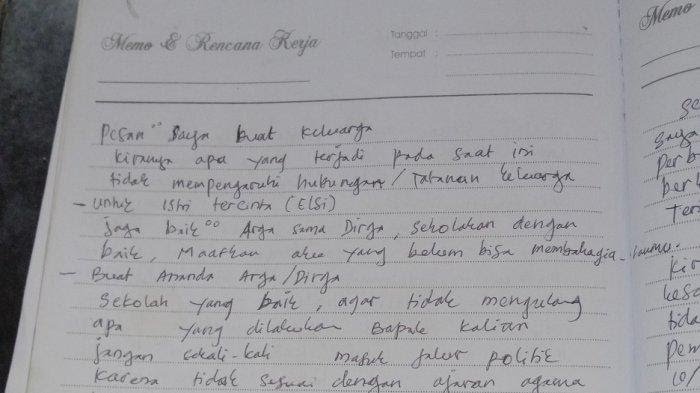 Memo & Rencana Kerja
Tanggal :
Tempat :
Pesan °° Saya buat keluarga
kiranya apa yang terjadi pada saat ini
tidak mempengaruhi hubungan / Tatanan keluarga
- untuk Istri tercinta (ELSi)
jaga baik°° Arga sama Dirga, sekolahan dengan
baik, Maafkan aku yang belum bisa membahagia-kanmu.
- Buat Ananda Arga/Dirga
Sekolah yang baik, agar tidak mengulang
apa yang dilakukan Bapak kalian
jangan sekali-kali masuk jalur politik
karena tidak sesuai dengan ajaran agama
Memo
saya
perb
berl
Ter
kir
kesa
tida
pem